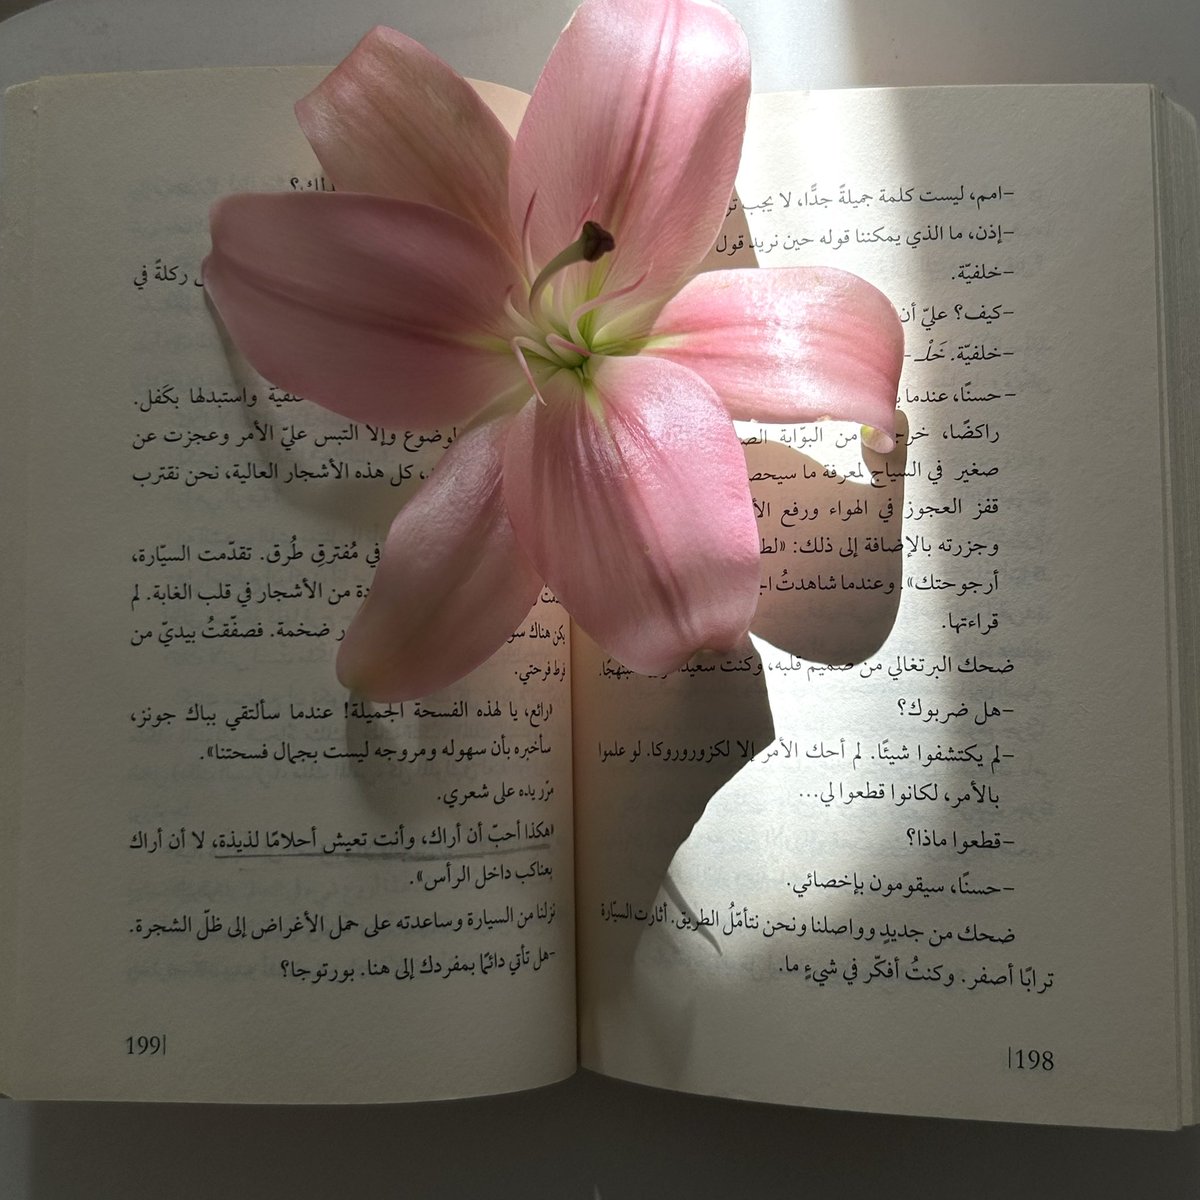 -امم، ليست كلمة جميلةً جدًّا، لا يجب
-إذن، ما الذي يمكننا قوله حين نريد قول
-خلفيّة.
-كيف؟ عليّ أن
-خلفيّة. خَلْـ -
-حسنًا، عندما
راكضًا، من البوّابة
صغير في السياج لمعرفة ما
قفز العجوز في الهواء ورفع
وجزرته بالإضافة إلى ذلك:
أرجوحتك». وعندما شاهدتُ
قراءتها.
ضحك البرتغالي من صميم قلبه، وكنت
-هل ضربوك؟
-لم يكتشفوا شيئًا. لم أحك الأمر إلا لكزوروروكا. لو علموا
بالأمر، لكانوا قطعوا لي...
-قطعوا ماذا؟
-حسنًا، سيقومون بإخصائي.
ضحك من جديدٍ وواصلنا ونحن نتأمّلُ الطريق. أثارت السيّارة
ترابًا أصفر. وكنتُ أفكّر في شيءٍ ما.
|198
ركلةً في
واستبدلها بكَفل.
وإلا التبس عليّ الأمر وعجزت عن
كل هذه الأشجار العالية، نحن نقترب
في مُفترقِ طُرق. تقدّمت السيّارة،
من الأشجار في قلب الغابة. لم
يكن هناك ضخمة. فصفّقتُ بيديّ من
فرط فرحتي.
«رائع، يا لهذه الفسحة الجميلة! عندما سألتقي بباك جونز،
سأخبره بأن سهوله ومروجه ليست بجمال فسحتنا».
مرّر يده على شعري.
«هكذا أحبّ أن أراك، وأنت تعيش أحلامًا لذيذة، لا أن أراك
بعناكب داخل الرأس».
نزلنا من السيارة وساعدته على حمل الأغراض إلى ظلّ الشجرة.
-هل تأتي دائمًا بمفردك إلى هنا. بورتوجا؟
199|